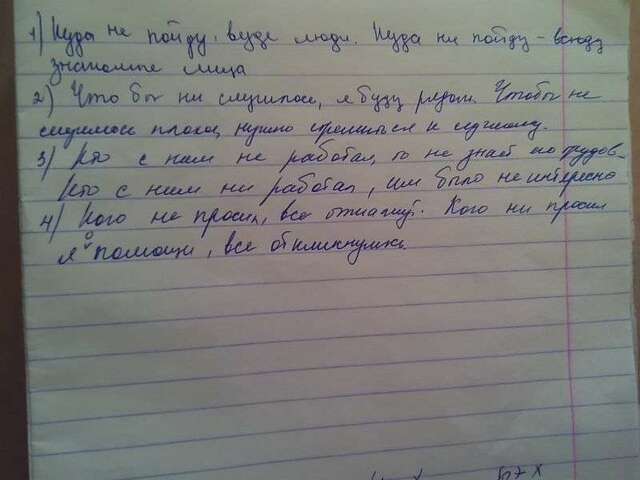 1) Куда не пойду, везде люди. Куда ни пойду - всюду
знакомые лица
2) Что бы ни случилось, я буду рядом. Чтобы не
случилось плохое, нужно стремиться к лучшему.
3) Кто с ним не работал, то не знает его трудов.
Кто с ним ни работал, им было не интересно
4) Кого не просил, все откажут. Кого ни просил
я о помощи, все откликнулись.
57 х